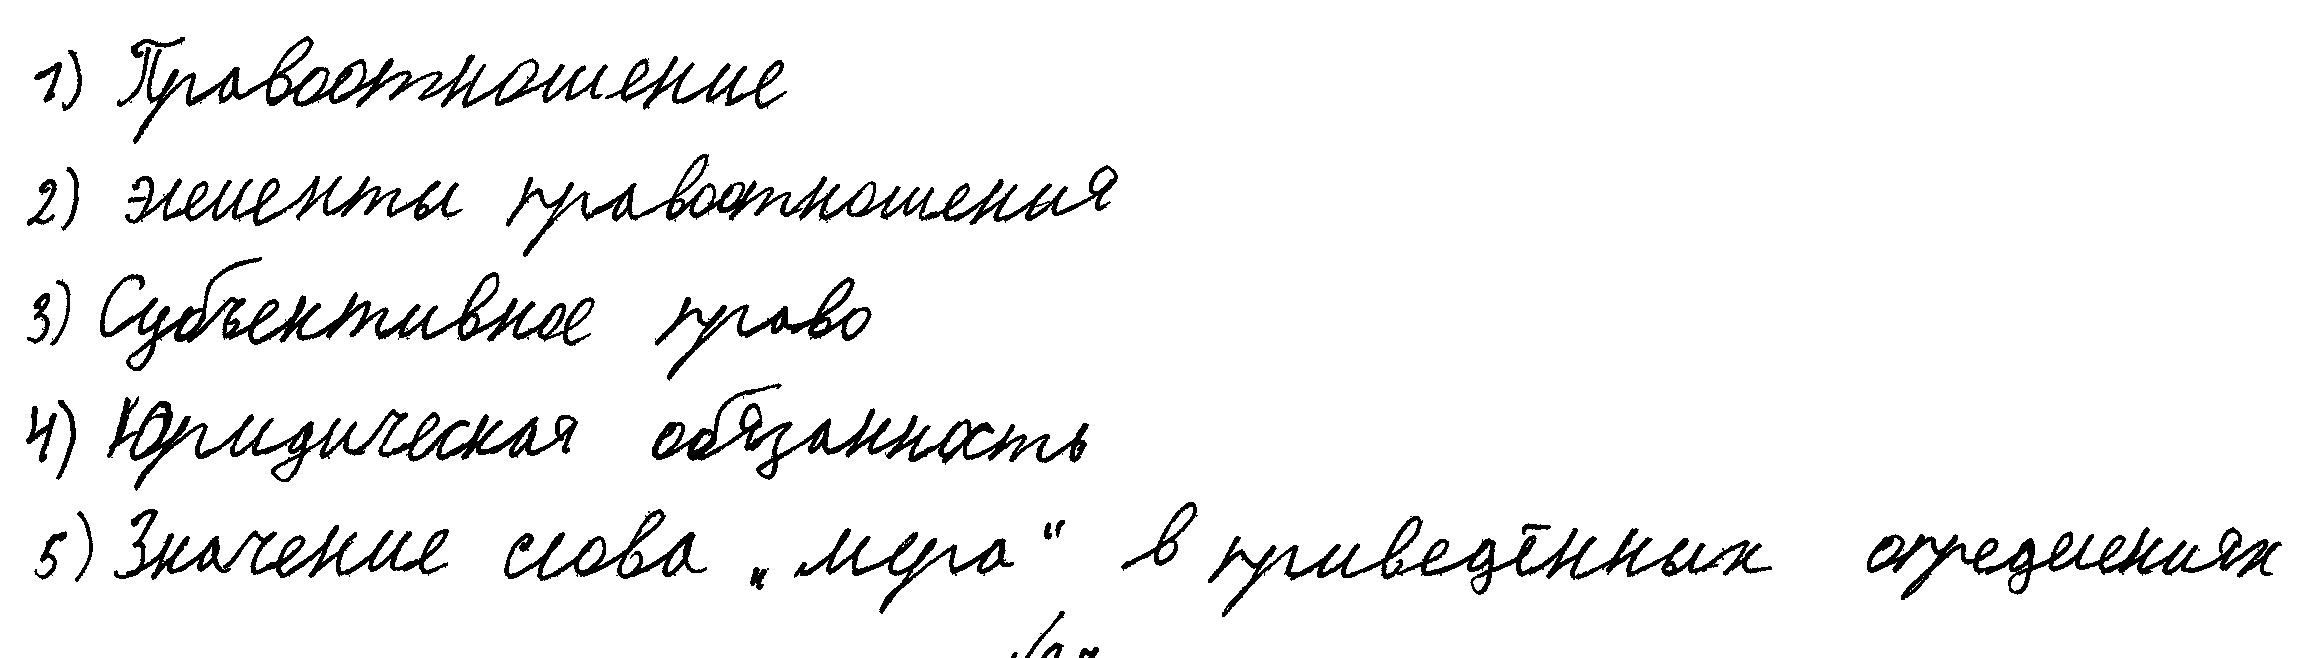 1) Правоотношение
2) элементы правоотношения
3) Субъективное право
4) Юридическая обязанность
5) Значение слова „мера“ в приведённых определениях